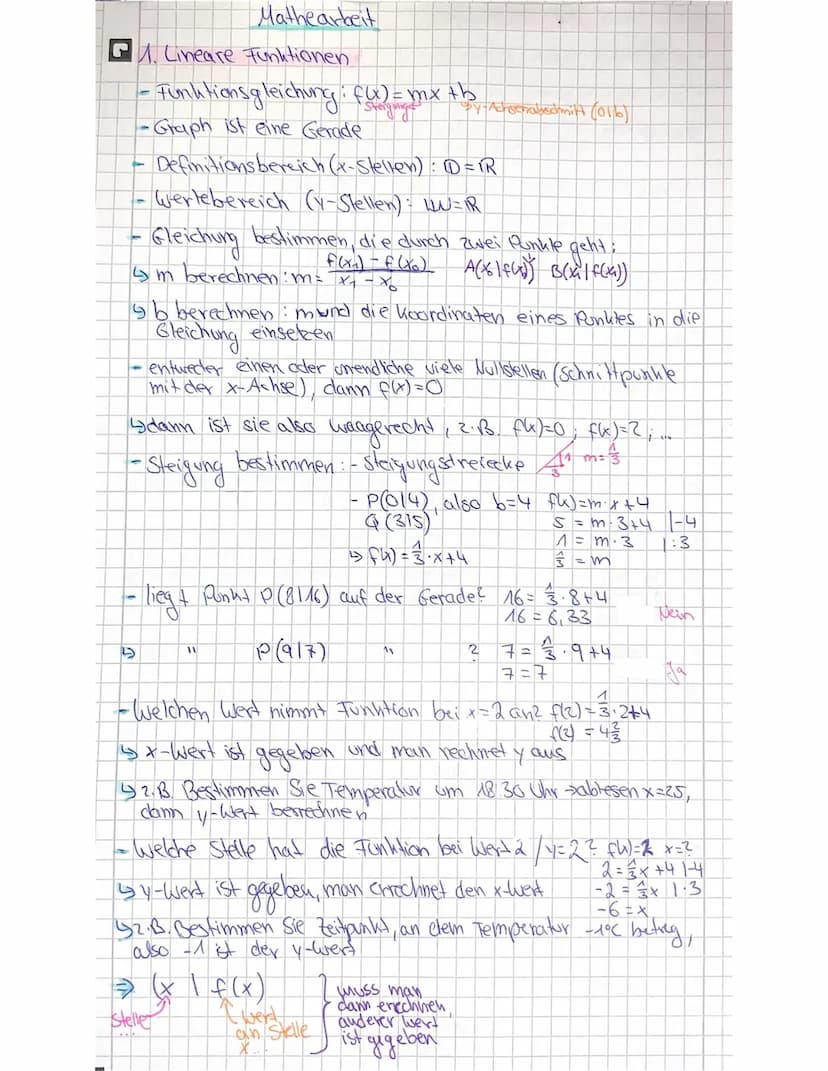 Mathearbeit
1. Lineare Funktionen
- Funktionsgleichung: f(x) = mx + b
Steigung y-Achsenabschnitt (0|b)
- Graph ist eine Gerade
- Definitionsbereich (x-Stellen): 𝔻 = ℝ
- Wertebereich (y-Stellen): 𝕎 = ℝ
- Gleichung bestimmen, die durch zwei Punkte geht:
↳ m berechnen: m = (f(x₁) - f(x₀))/(x₁ - x₀) A(x₀|f(x₀)) B(x₁|f(x₁))
↳ b berechnen: m und die Koordinaten eines Punktes in die
Gleichung einsetzen
- entweder einen oder unendliche viele Nullstellen (Schnittpunkte
mit der x-Achse), dann f(x) = 0
↳ dann ist sie also waagerecht, z.B. f(x)=0; f(x)=2; ...
- Steigung bestimmen: - Steigungsdreiecke 1 3 m=1/3
- P(0|4), also b=4 f(x)=m·x+4
Q(3|5) 5 = m·3+4 |-4
1 = m·3 |:3
↳ f(x) = 1/3·x+4 1/3 = m
- liegt Punkt P(8|16) auf der Gerade? 16 = 1/3·8+4
16 = 6,33 Nein
↳ " P(9|7) " ? 7 = 1/3·9+4
7 = 7 Ja
- Welchen Wert nimmt Funktion bei x=2 an? f(2) = 1/3·2+4
f(2) = 4 2/3
↳ x-Wert ist gegeben und man rechnet y aus
↳ z.B. Bestimmen Sie Temperatur um 18:30 Uhr → ablesen x=25,
dann y-Wert berrechnen
- Welche Stelle hat die Funktion bei Wert 2 / y=2? f(x)=2 x=?
2 = 1/3x +4 |-4
↳ y-Wert ist gegeben, man errechnet den x-Wert -2 = 1/3x |·3
-6 = x
↳ z.B. Bestimmen Sie Zeitpunkt, an dem Temperatur -1°C betrug,
also -1 ist der y-Wert
⇒ (x | f(x)
Stelle
...
Wert
an Stelle
x...
muss man
dann errechnen,
anderer Wert
ist gegeben